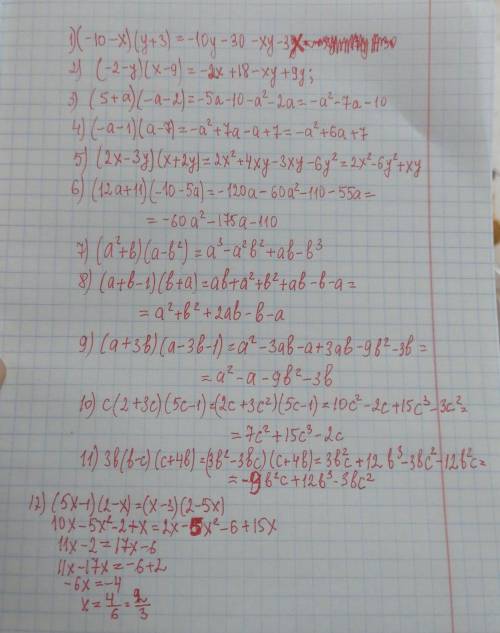 1) (-10-x)(y+3)=-10y-30-xy-3x
2) (-2-y)(x-9)=-2x+18-xy+9y;
3) (5+a)(-a-2)=-5a-10-a²-2a=-a²-7a-10
4) (-a-1)(a-7)=-a²+7a-a+7=-a²+6a+7
5) (2x-3y)(x+2y)=2x²+4xy-3xy-6y²=2x²-6y²+xy
6) (12a+11)(-10-5a)=-120a-60a²-110-55a=
=-60a²-175a-110
7) (a²+b)(a-b²)=a³-a²b²+ab-b³
8) (a+b-1)(b+a)=ab+a²+b²+ab-b-a=
=a²+b²+2ab-b-a
9) (a+3b)(a-3b-1)=a²-3ab-a+3ab-9b²-3b=
=a²-a-9b²-3b
10) c(2+3c)(5c-1)=(2c+3c²)(5c-1)=10c²-2c+15c³-3c²=
=7c²+15c³-2c
11) 3b(b-c)(c+4b)=(3b²-3bc)(c+4b)=3b²c+12b³-3bc²-12b²c=
=-9b²c+12b³-3bc²
12) (5x-1)(2-x)=(x-3)(2-5x)
10x-5x²-2+x=2x-5x²-6+15x
11x-2=17x-6
11x-17x=-6+2
-6x=-4
x=4/6=2/3